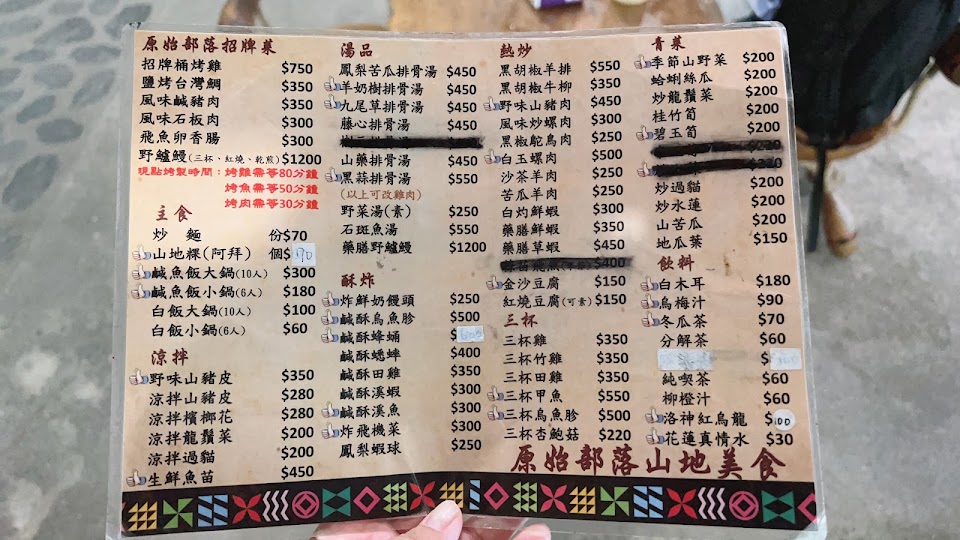 原始部落招牌菜
招牌桶烤雞 $750
鹽烤台灣鯛 $350
風味鹹豬肉 $350
石板肉 $300
飛魚卵香腸 $300
野鱸鰻(三杯、紅燒、乾煎) $1200
現點烤製時間：烤雞需等80分鐘
烤魚需等50分鐘
烤肉需等30分鐘
主食
炒 麵 份$70
山地粿(阿拜) 個$70
鹹魚飯大鍋(10人) $300
鹹魚飯小鍋(6人) $180
白飯大鍋(10人) $100
白飯小鍋(6人) $60
涼拌
野味山豬皮 $350
涼拌山豬皮 $280
涼拌檳榔花 $280
涼拌龍鬚菜 $200
涼拌過貓 $200
生鮮魚苗 $450
湯品
鳳梨苦瓜排骨湯 $450
羊奶樹排骨湯 $450
九尾草排骨湯 $450
藤心排骨湯 $450
山藥排骨湯 $450
黑蒜排骨湯 $550
(以上可改雞肉)
野菜湯(素) $250
石斑魚湯 $550
藥膳野鱸鰻 $1200
酥炸
炸鮮奶饅頭 $250
鹹酥烏魚胗 $500
鹹酥蜂蛹 $
鹹酥蟋蟀 $400
鹹酥田雞 $350
鹹酥溪蝦 $300
鹹酥溪魚 $300
炸飛機菜 $300
鳳梨蝦球 $250
熱炒
黑胡椒羊排 $550
黑胡椒牛柳 $350
野味山豬肉 $450
風味炒螺肉 $300
黑椒鴕鳥肉 $450
白玉螺肉 $500
沙茶羊肉 $250
苦瓜羊肉 $250
白灼鮮蝦 $300
藥膳草蝦 $450
$400
金沙豆腐 $150
紅燒豆腐(可素) $150
三杯
三杯雞 $350
三杯竹雞 $350
三杯田雞 $350
三杯甲魚 $550
三杯烏魚胗 $500
三杯杏鮑菇 $220
青菜
季節山野菜 $200
蛤蜊絲瓜 $200
炒龍鬚菜 $200
桂竹筍 $200
碧玉筍 $200
炒過貓 $200
炒水蓮 $200
山苦瓜 $200
地瓜葉 $150
飲料
白木耳 $180
烏梅汁 $90
冬瓜茶 $70
分解茶 $60
$100
純喫茶 $60
柳橙汁 $60
洛神紅烏龍 $100
花蓮真情水 $30
原始部落山地美食